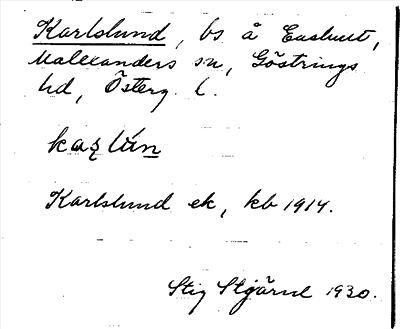 Karlslund, bs å Enshult,
Malexanders sn, Göstrings
hd, Österg. l.
Karlslund ek, kb 1914.
Stig Stjärne 1930.